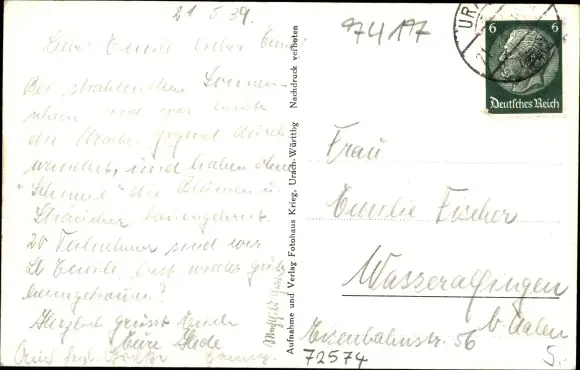 21 5 39.
Liebe Emile lieber
Bei strahlendem Sonnen-
schein sind wir heute
die Uracher gegend durch
wandert, und haben ohne
die Blumen u.
Sträucher
20 Teilnehmer sind wir
Lb Emile, bist wieder gut
heimgekommen?
Herzlich grüsst Euch
Eure
Aufnahme und Verlag Fotohaus Krieg, Urach-Württbg Nachdruck verboten
97417
UR
6 6
Deutsches Reich
Frau
Emilie Fischer
Wasseralfingen
b Aalen
Eisenbahnstr. 56
72574
S.